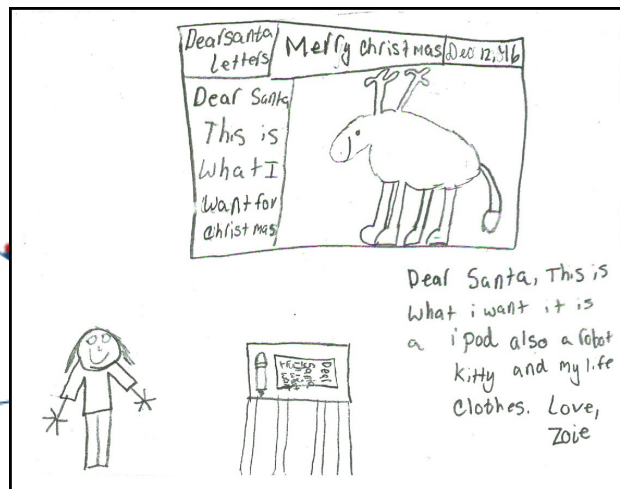 Dear santa
Letters
Merry christmas
Dear Santa
This is
What I
want for
christmas
Dear Santa, This is
what i want it is
a ipod also a robot
kitty and my life
clothes. Love,
Zoie